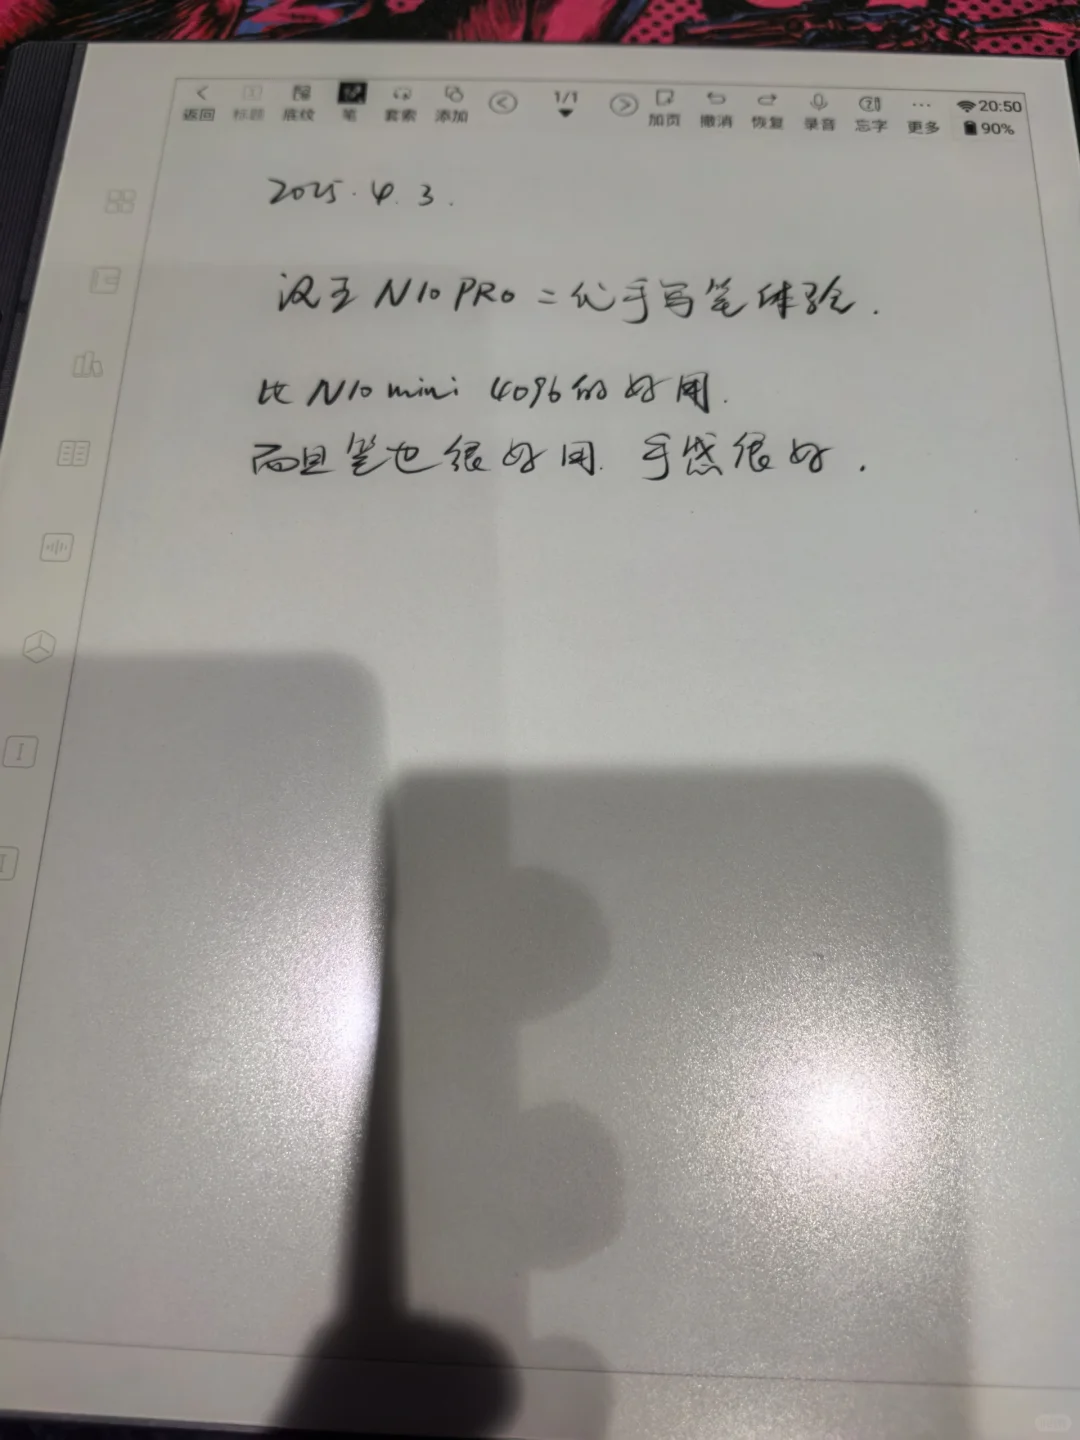 返回 标题 底纹 笔 套索 添加 1/1 加页 撤消 恢复 录音 忘字 更多 20:50 90%
2025.4.3.
汉王 N10 PRO 二代手写笔体验.
比 N10 mini 4096的好用.
而且笔也很好用. 手感很好.